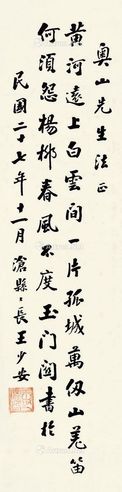 奥山先生法正
黄河遠上白雲間一片孤城萬仞山羌笛
何須怨楊栁春風不度玉门関書於
民國二十七年十一月滄縣々長王少安